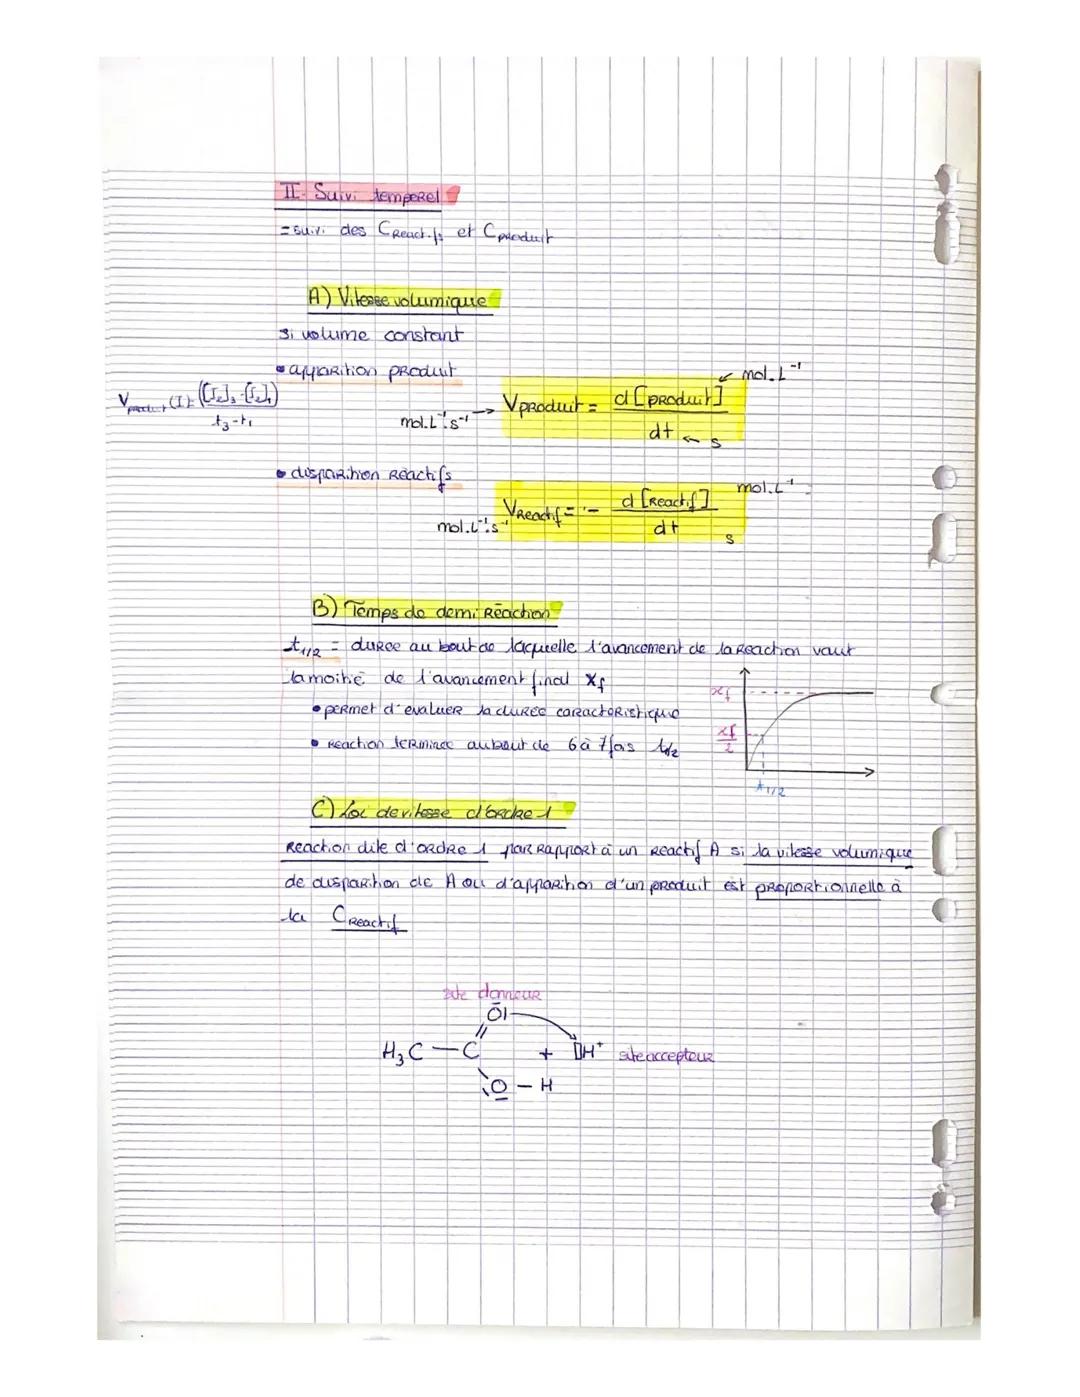 II- Suivi temporel
= suivi des Créactifs et Cproduit
A) Vitesse volumique
si volume constant
• apparition produit
Vproduit (I) = ([I₂]₃ - [I₂]₁) / t₃ - t₁
mol.L⁻¹.s⁻¹ → Vproduit = d [produit] / dt ← s
↙ mol.L⁻¹
• disparition réactifs
mol.L⁻¹.s⁻¹ Vréactif = - d [Réactif] / dt s
mol.L⁻¹
B) Temps de demi Réaction
t₁/₂ = durée au bout de laquelle l'avancement de la réaction vaut
la moitié de l'avancement final xf
• permet d'évaluer la durée caractéristique
• Réaction terminée au bout de 6 à 7 fois t₁/₂
xf
xf/2
t₁/₂
C) Loi de vitesse d'ordre 1
Réaction dite d'ordre 1 par rapport à un réactif A si la vitesse volumique
de disparition de A ou d'apparition d'un produit est proportionnelle à
la Créactif
site donneur
O
H₃C — C + H⁺ site accepteur
O - H